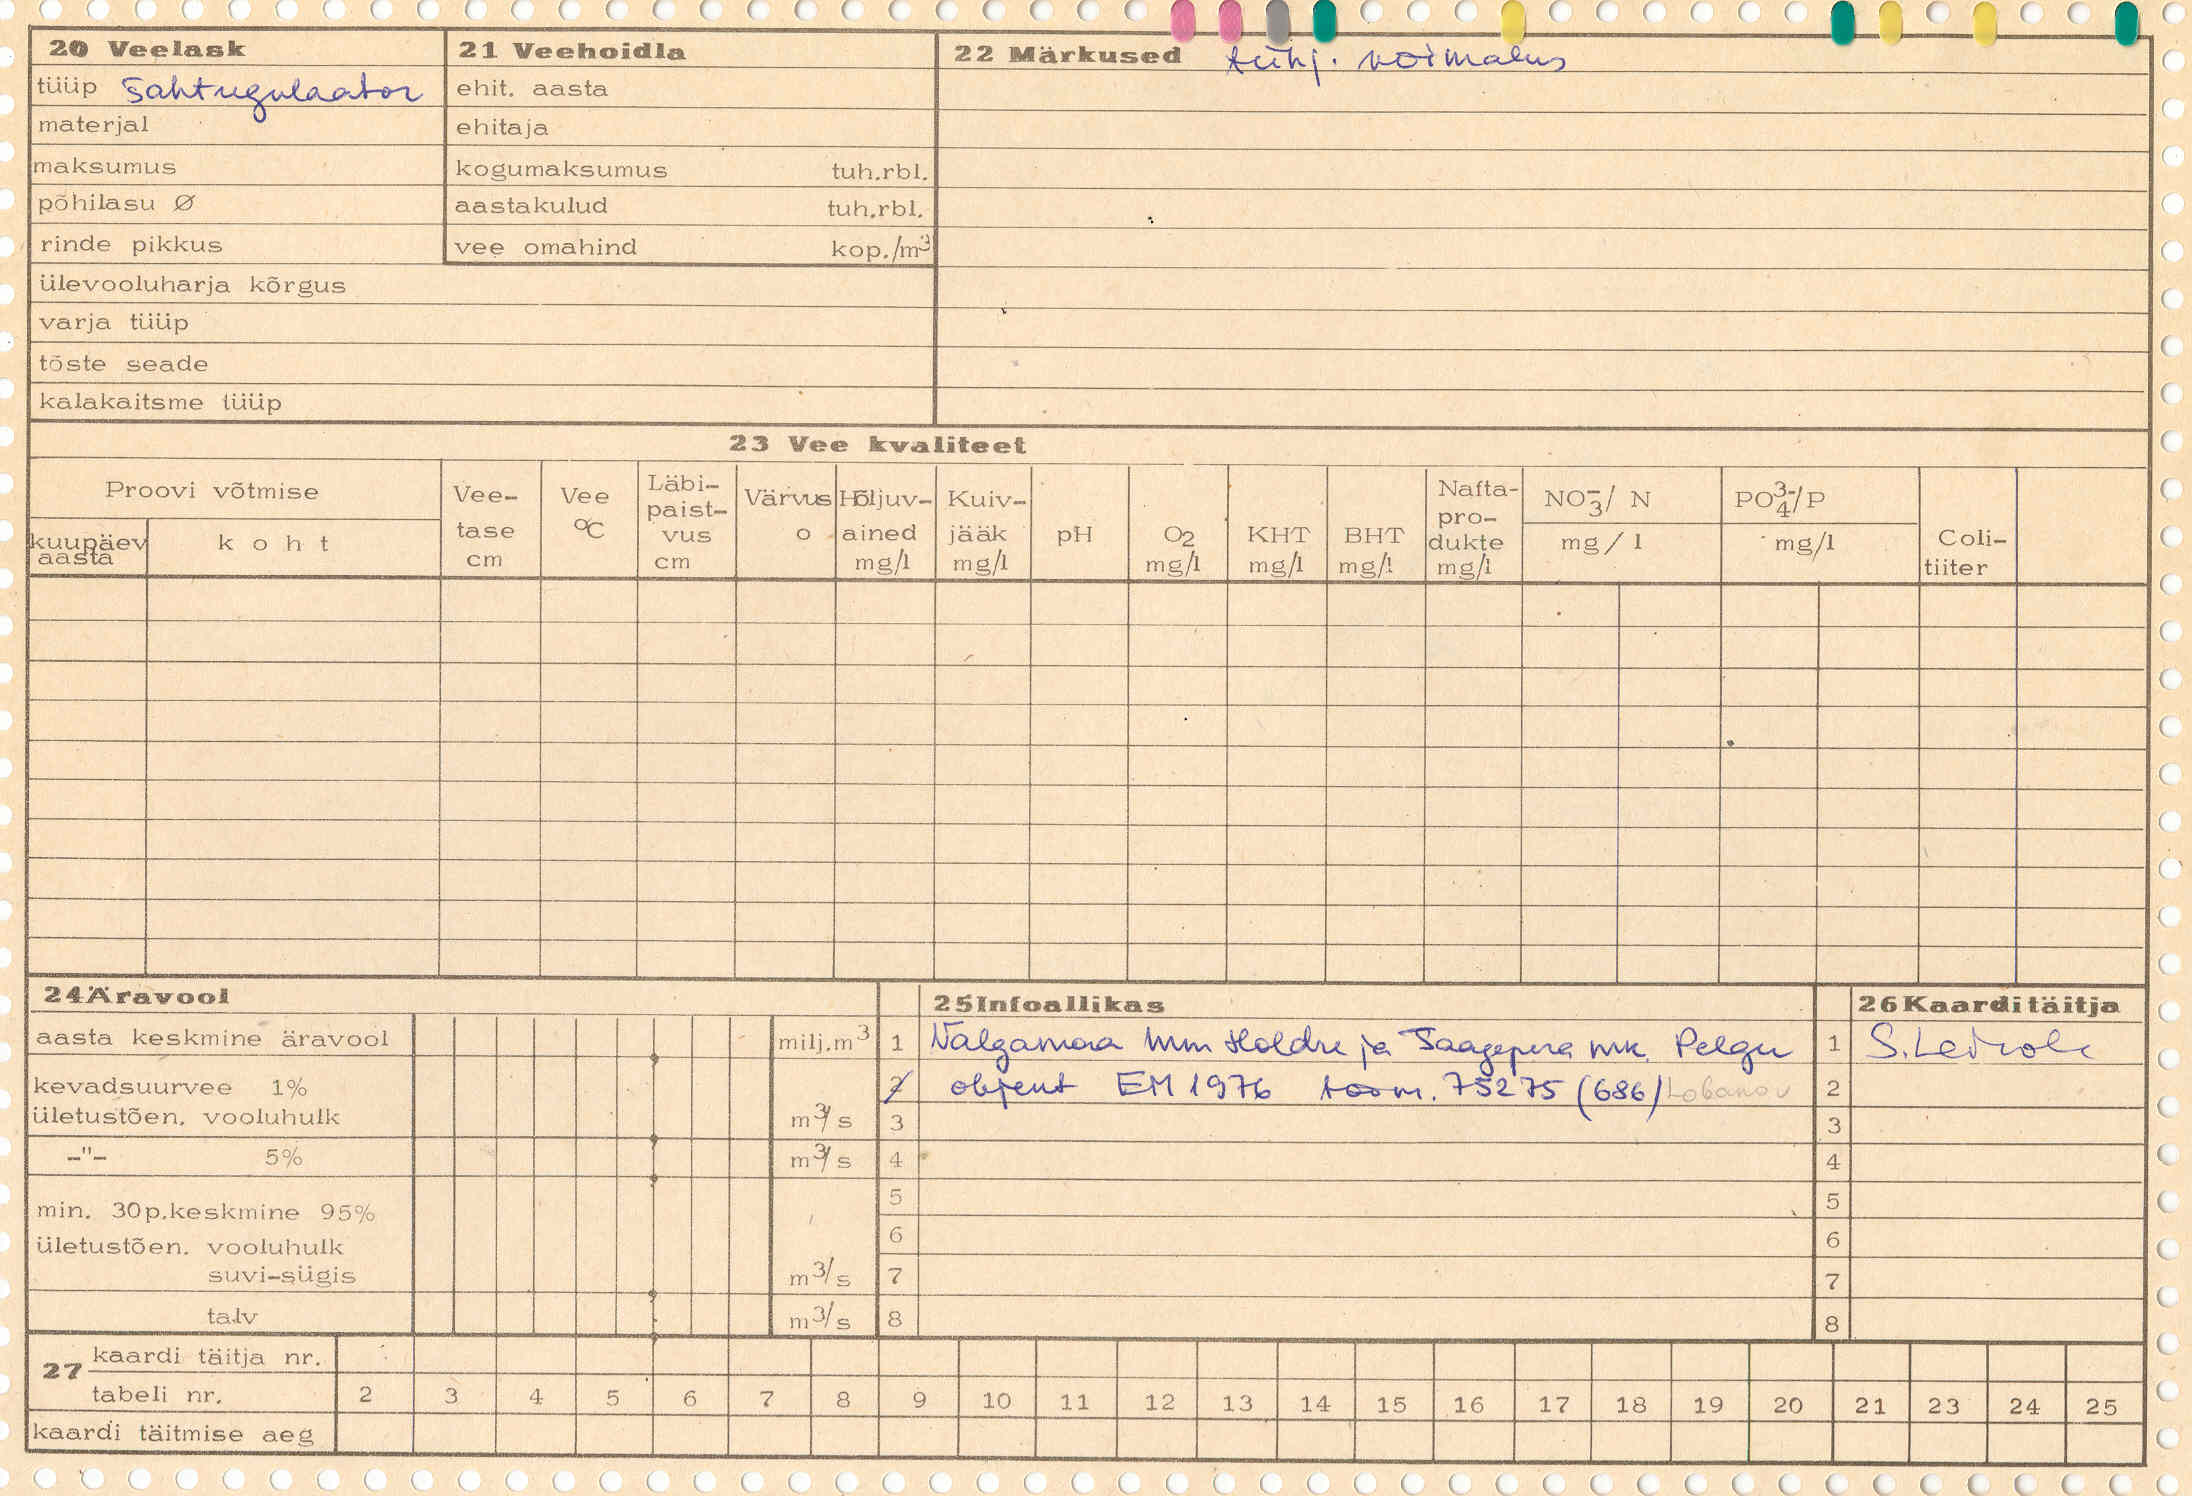 20 Veelask
tüüp šahtregulaator
materjal
maksumus
põhilasu Ø
rinde pikkus
ülevooluharja kõrgus
varja tüüp
tõste seade
kalakaitsme tüüp
21 Veehoidla
ehit. aasta
ehitaja
kogumaksumus tuh.rbl.
aastakulud tuh.rbl.
vee omahind kop./m³
22 Märkused tühj. võimalus
23 Vee kvaliteet
Proovi võtmise
kuupäev
aasta
koht
Vee-
tase
cm
Vee
°C
Läbi-
paist-
vus
cm
Värvus
o
Hõljuv-
ained
mg/l
Kuiv-
jääk
mg/l
pH
O₂
mg/l
KHT
mg/l
BHT
mg/l
Nafta-
pro-
dukte
mg/l
NO₃⁻/ N
mg/l
PO₄³⁻/P
mg/l
Coli-
tiiter
24 Äravool
aasta keskmine äravool milj.m³
kevadsuurvee 1%
ületustõen. vooluhulk m³/s
-"- 5% m³/s
min. 30p.keskmine 95%
ületustõen. vooluhulk
suvi-sügis m³/s
talv m³/s
25 Infoallikas
1 Valgamaa mm Holdre ja Taagepera mk. Pelgu
2 objekt EM 1976 toom. 75275 (686) Lobanov
3
4
5
6
7
8
26 Kaardi täitja
1 S.
2
3
4
5
6
7
8
27 kaardi täitja nr.
tabeli nr. 2 3 4 5 6 7 8 9 10 11 12 13 14 15 16 17 18 19 20 21 23 24 25
kaardi täitmise aeg